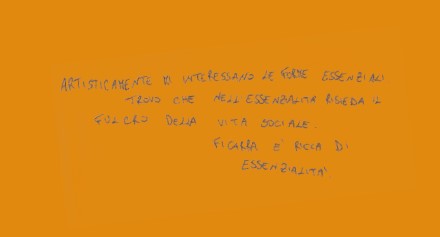 ARTISTICAMENTE MI INTERESSANO LE FORME ESSENZIALI
TROVO CHE NELL'ESSENZIALITÀ RISIEDA IL
FULCRO DELLA VITA SOCIALE.
FIGARRA È RICCA DI
ESSENZIALITÀ